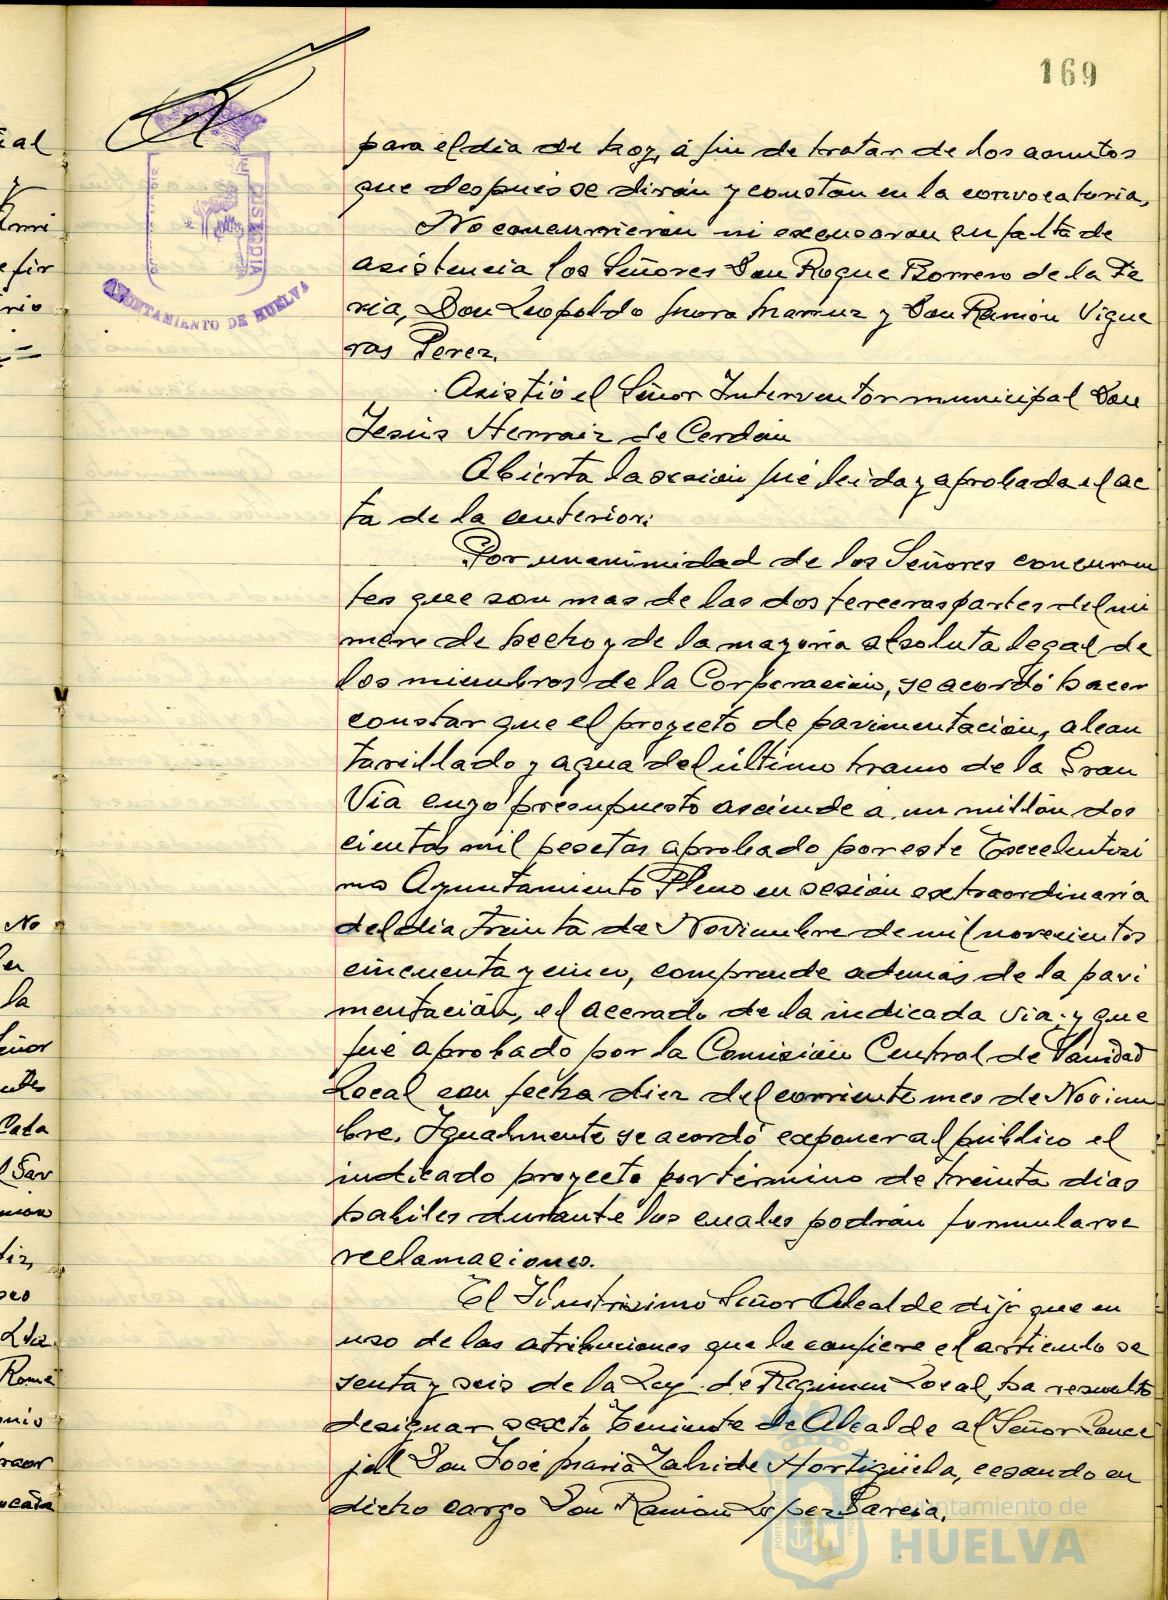 169
para el dia de hoy, á fin de tratar de los asuntos
que despues se dirán y constan en la convocatoria,
No concurrieron ni excusaron su falta de
asistencia los Señores Don Roque Borrero de la Fe
ria, Don Leopoldo Mora y Don Ramón Vigue
ras Perez.
Asistió el Señor Interventor municipal Don
Jesús Herraiz de Cerdán
Abierta la sesión fué leida y aprobada el ac
ta de la anterior:
Por unanimidad de los Señores concurren
tes que son mas de las dos terceras partes del nú
mero de hecho y de la mayoria absoluta legal de
los miembros de la Corporación, se acordó hacer
constar que el proyecto de pavimentación, alcan
tarillado y agua del último tramo de la Gran
Via cuyo presupuesto asciende a un millón dos
cientas mil pesetas aprobado por este Excelentisi
mo Ayuntamiento Pleno en sesión extraordinaria
del dia treinta de Noviembre de mil novecientos
cincuenta y cinco, comprende además de la pavi
mentación, el acerado de la indicada via y que
fué aprobado por la Comisión Central de Sanidad
Local con fecha diez del corriente mes de Noviem
bre. Igualmente se acordó exponer al público el
indicado proyecto por término de treinta dias
habiles durante los cuales podrán formularse
reclamaciones.
El Ilustrisimo Señor Alcalde dijo que en
uso de las atribuciones que le confiere el articulo se
senta y seis de la Ley de Régimen Local, ha resuelto
designar sexto Teniente de Alcalde al Señor Conce
jal Don José Maria Zalvide Hortigüela, cesando en
dicho cargo Don Ramón López Garcia.
CUSTODIA
AYUNTAMIENTO DE HUELVA
Ayuntamiento de
HUELVA